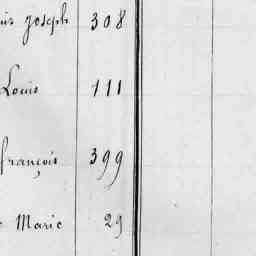 Joseph 308
Louis 111
françois 399
Marie 29